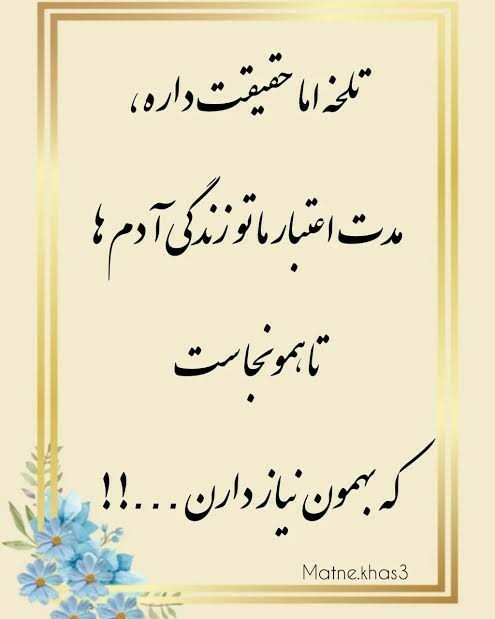 تلخه اما حقیقت داره،
مدت اعتبار ما تو زندگی آدم ها
تا همونجاست
که بهمون نیاز دارن...!!
Matne.khas3